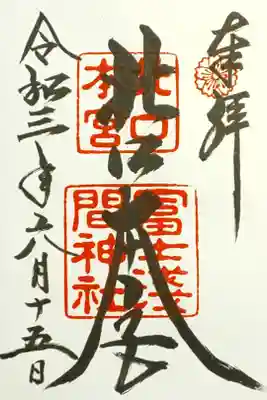 奉拝
北口本宮
北口
本宮
冨士浅
間神社
令和三年八月十五日